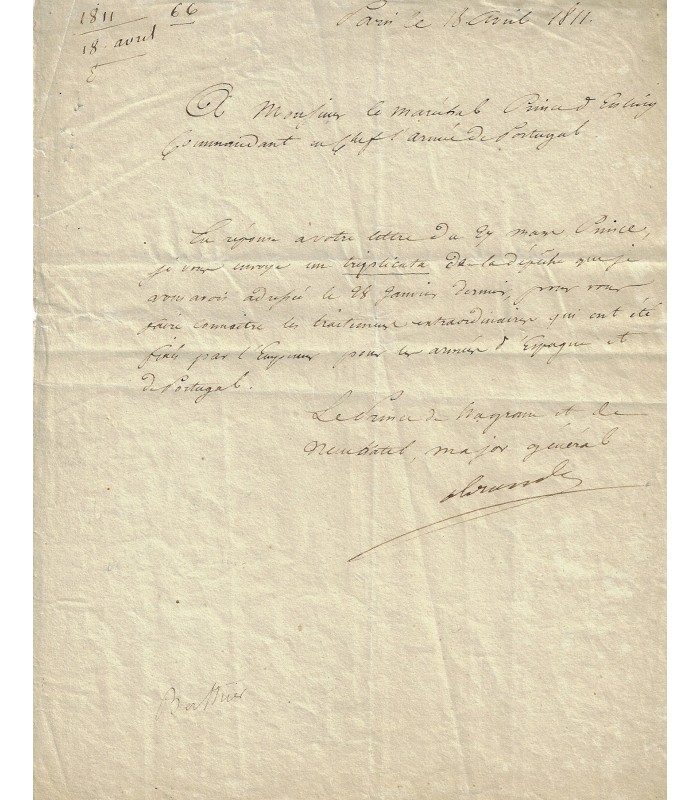 1811 66
18 avril
Paris le 18 Avril 1811.
A Monsieur le maréchal Prince d'Essling
Commandant en Chef l'armée de Portugal.
En réponse à votre lettre du 27 mars Prince,
je vous envoye un triplicata de la dépêche que je
vous avois adressée le 28 Janvier dernier, pour vous
faire connaitre les traitemens extraordinaires qui ont été
fixés par l'Empereur pour les armées d'Espagne et
de Portugal.
Le Prince de Wagram et de
Neuchatel, major général
Alexandre
Berthier